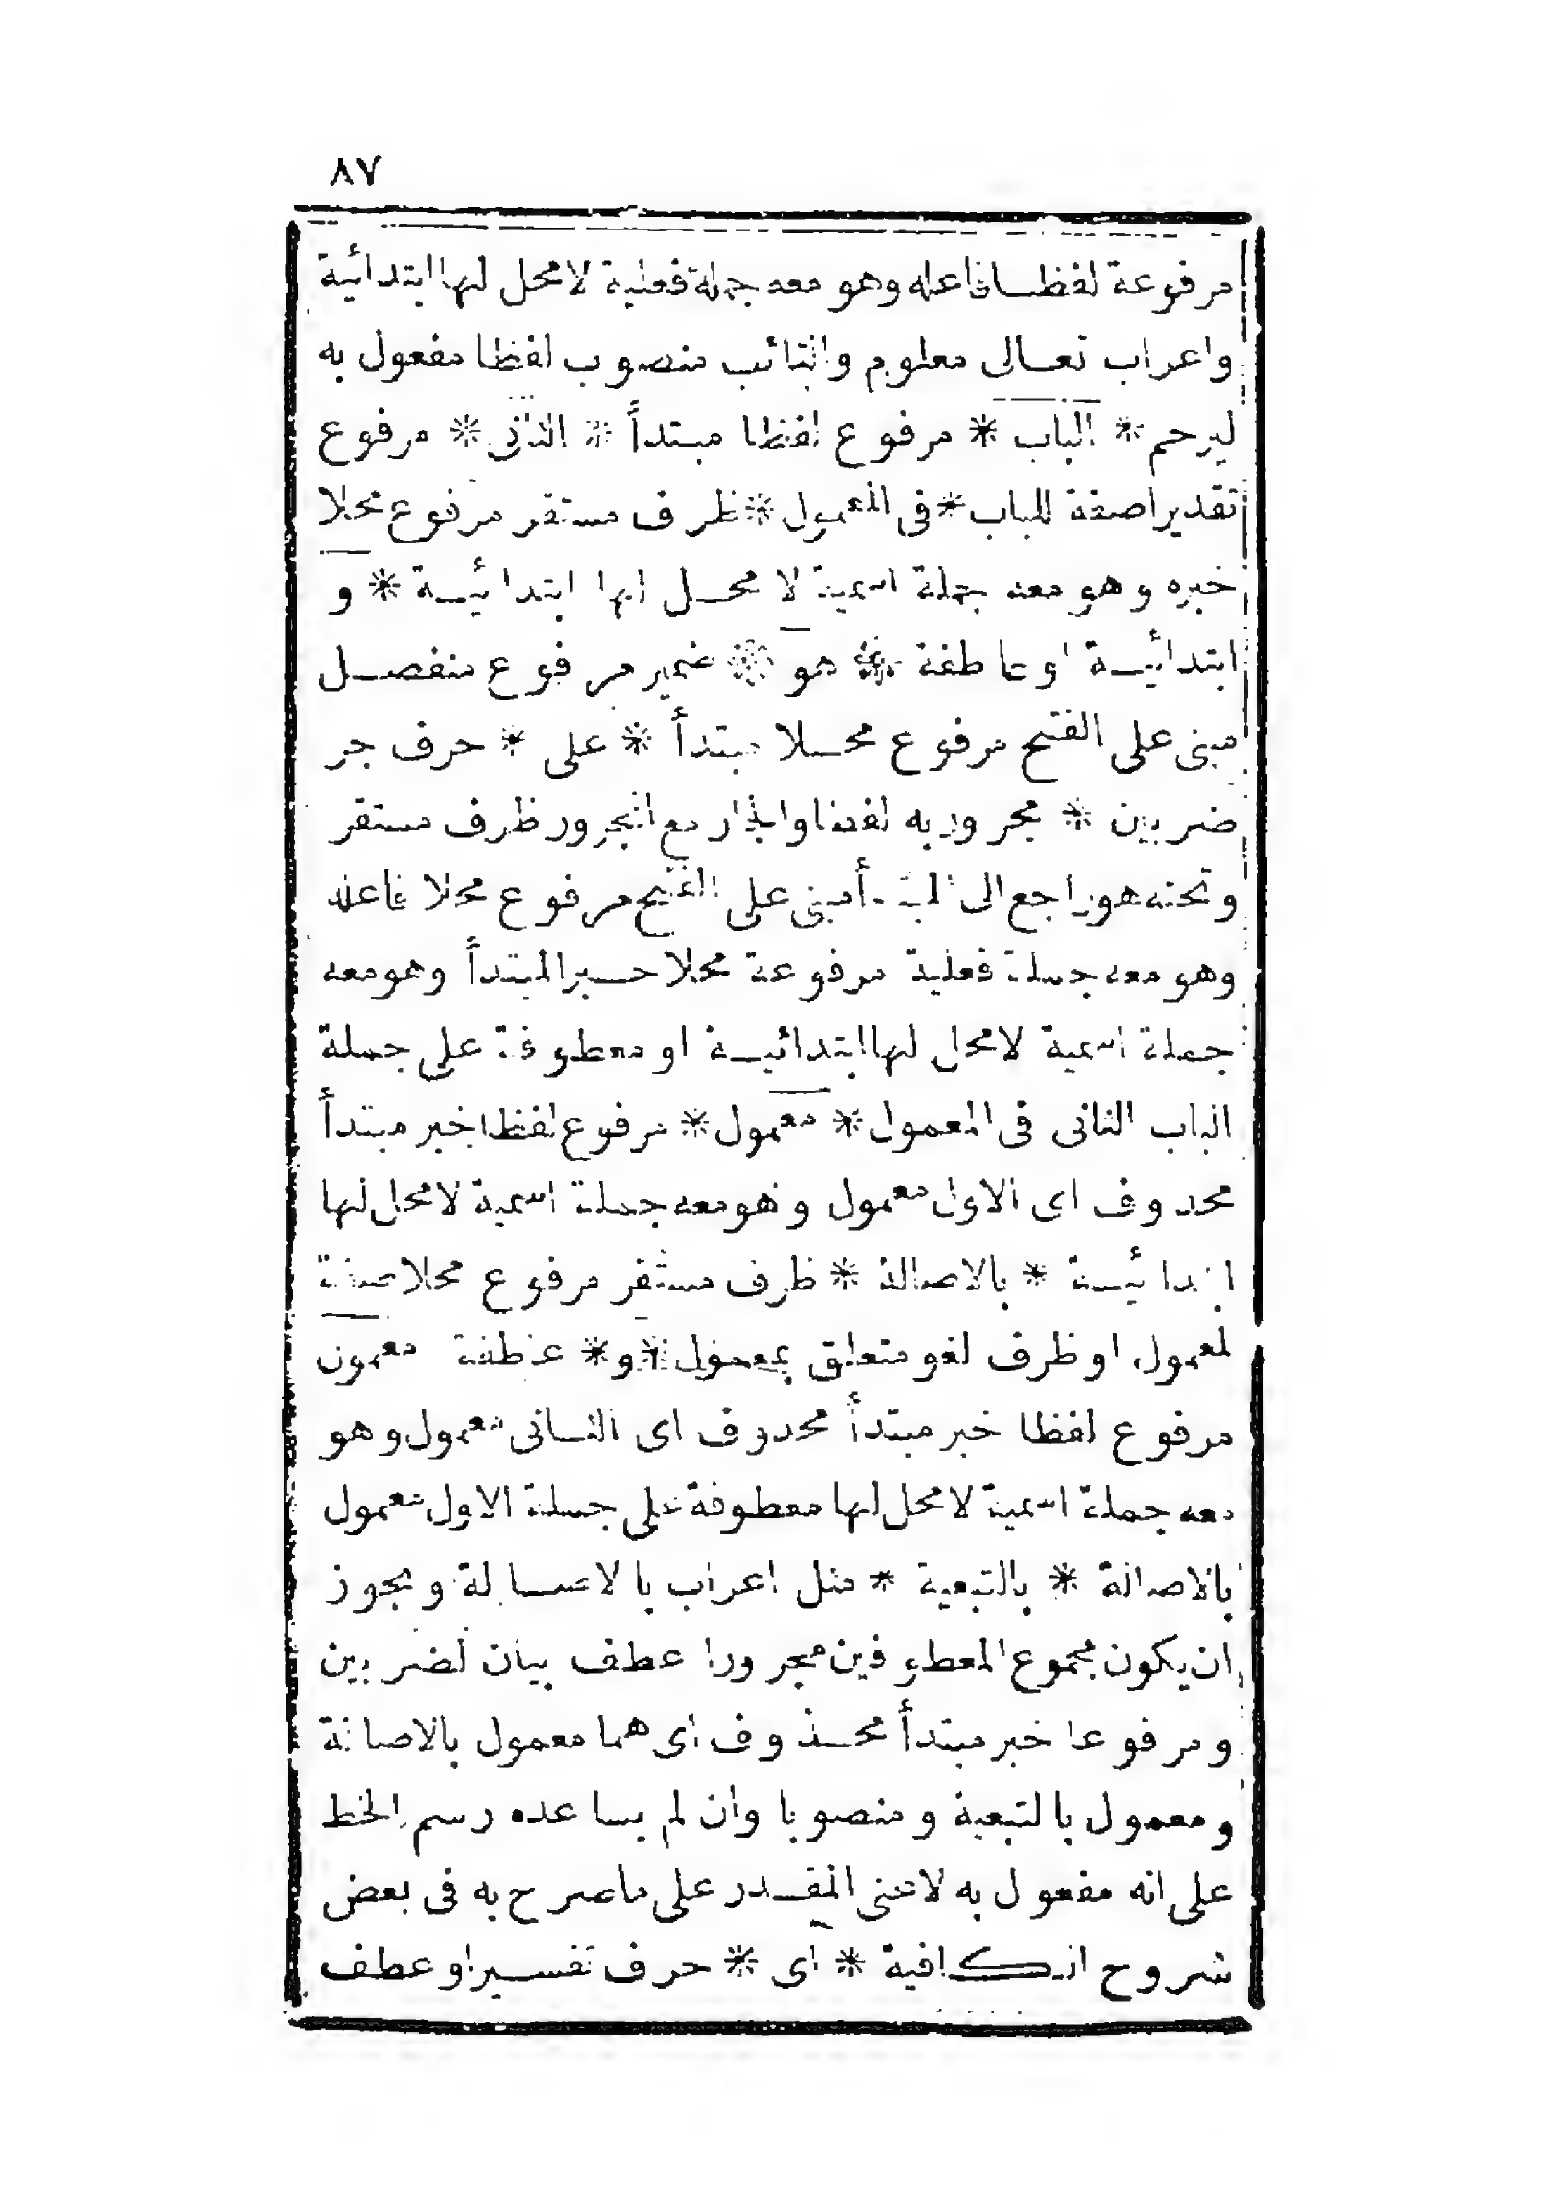 ٨٧
مرفوعة لفظا فاعله وهو معه جملة فعلية لا محل لها ابتدائية
واعراب تعالى معلوم والتائب منصوب لفظا مفعول به
ليرحم * الباب * مرفوع لفظا مبتدأ * الثانى * مرفوع
تقديرا صفة للباب * فى المعمول * ظرف مستقر مرفوع محلا
خبره وهو معه جملة اسمية لا محل لها ابتدائية * و
ابتدائية او عاطفة * هو * ضمير مرفوع منفصل
مبنى على الفتح مرفوع محلا مبتدأ * على * حرف جر
ضربين * مجرور به لفظا والجار مع المجرور ظرف مستقر
وتحته هو راجع الى المبتدأ مبنى على الفتح مرفوع محلا فاعله
وهو معه جملة فعلية مرفوعة محلا خبر المبتدأ وهو معه
جملة اسمية لا محل لها ابتدائية او معطوفة على جملة
الباب الثانى فى المعمول * معمول * مرفوع لفظا خبر مبتدأ
محذوف اى الاول معمول وهو معه جملة اسمية لا محل لها
ابتدائية * بالاصالة * ظرف مستقر مرفوع محلا صفة
لمعمول او ظرف لغو متعلق بمعمول * و * عاطفة معمول
مرفوع لفظا خبر مبتدأ محذوف اى الثانى معمول وهو
معه جملة اسمية لا محل لها معطوفة على جملة الاول معمول
بالاصالة * بالتبعية * مثل اعراب بالاصالة ويجوز
ان يكون مجموع المعطوفين مجرورا عطف بيان لضربين
ومرفوعا خبر مبتدأ محذوف اى هما معمول بالاصالة
ومعمول بالتبعية ومنصوبا وان لم يساعده رسم الخط
على انه مفعول به لاعنى المقدر على ما صرح به فى بعض
شروح الكافية * اى * حرف تفسير او عطف